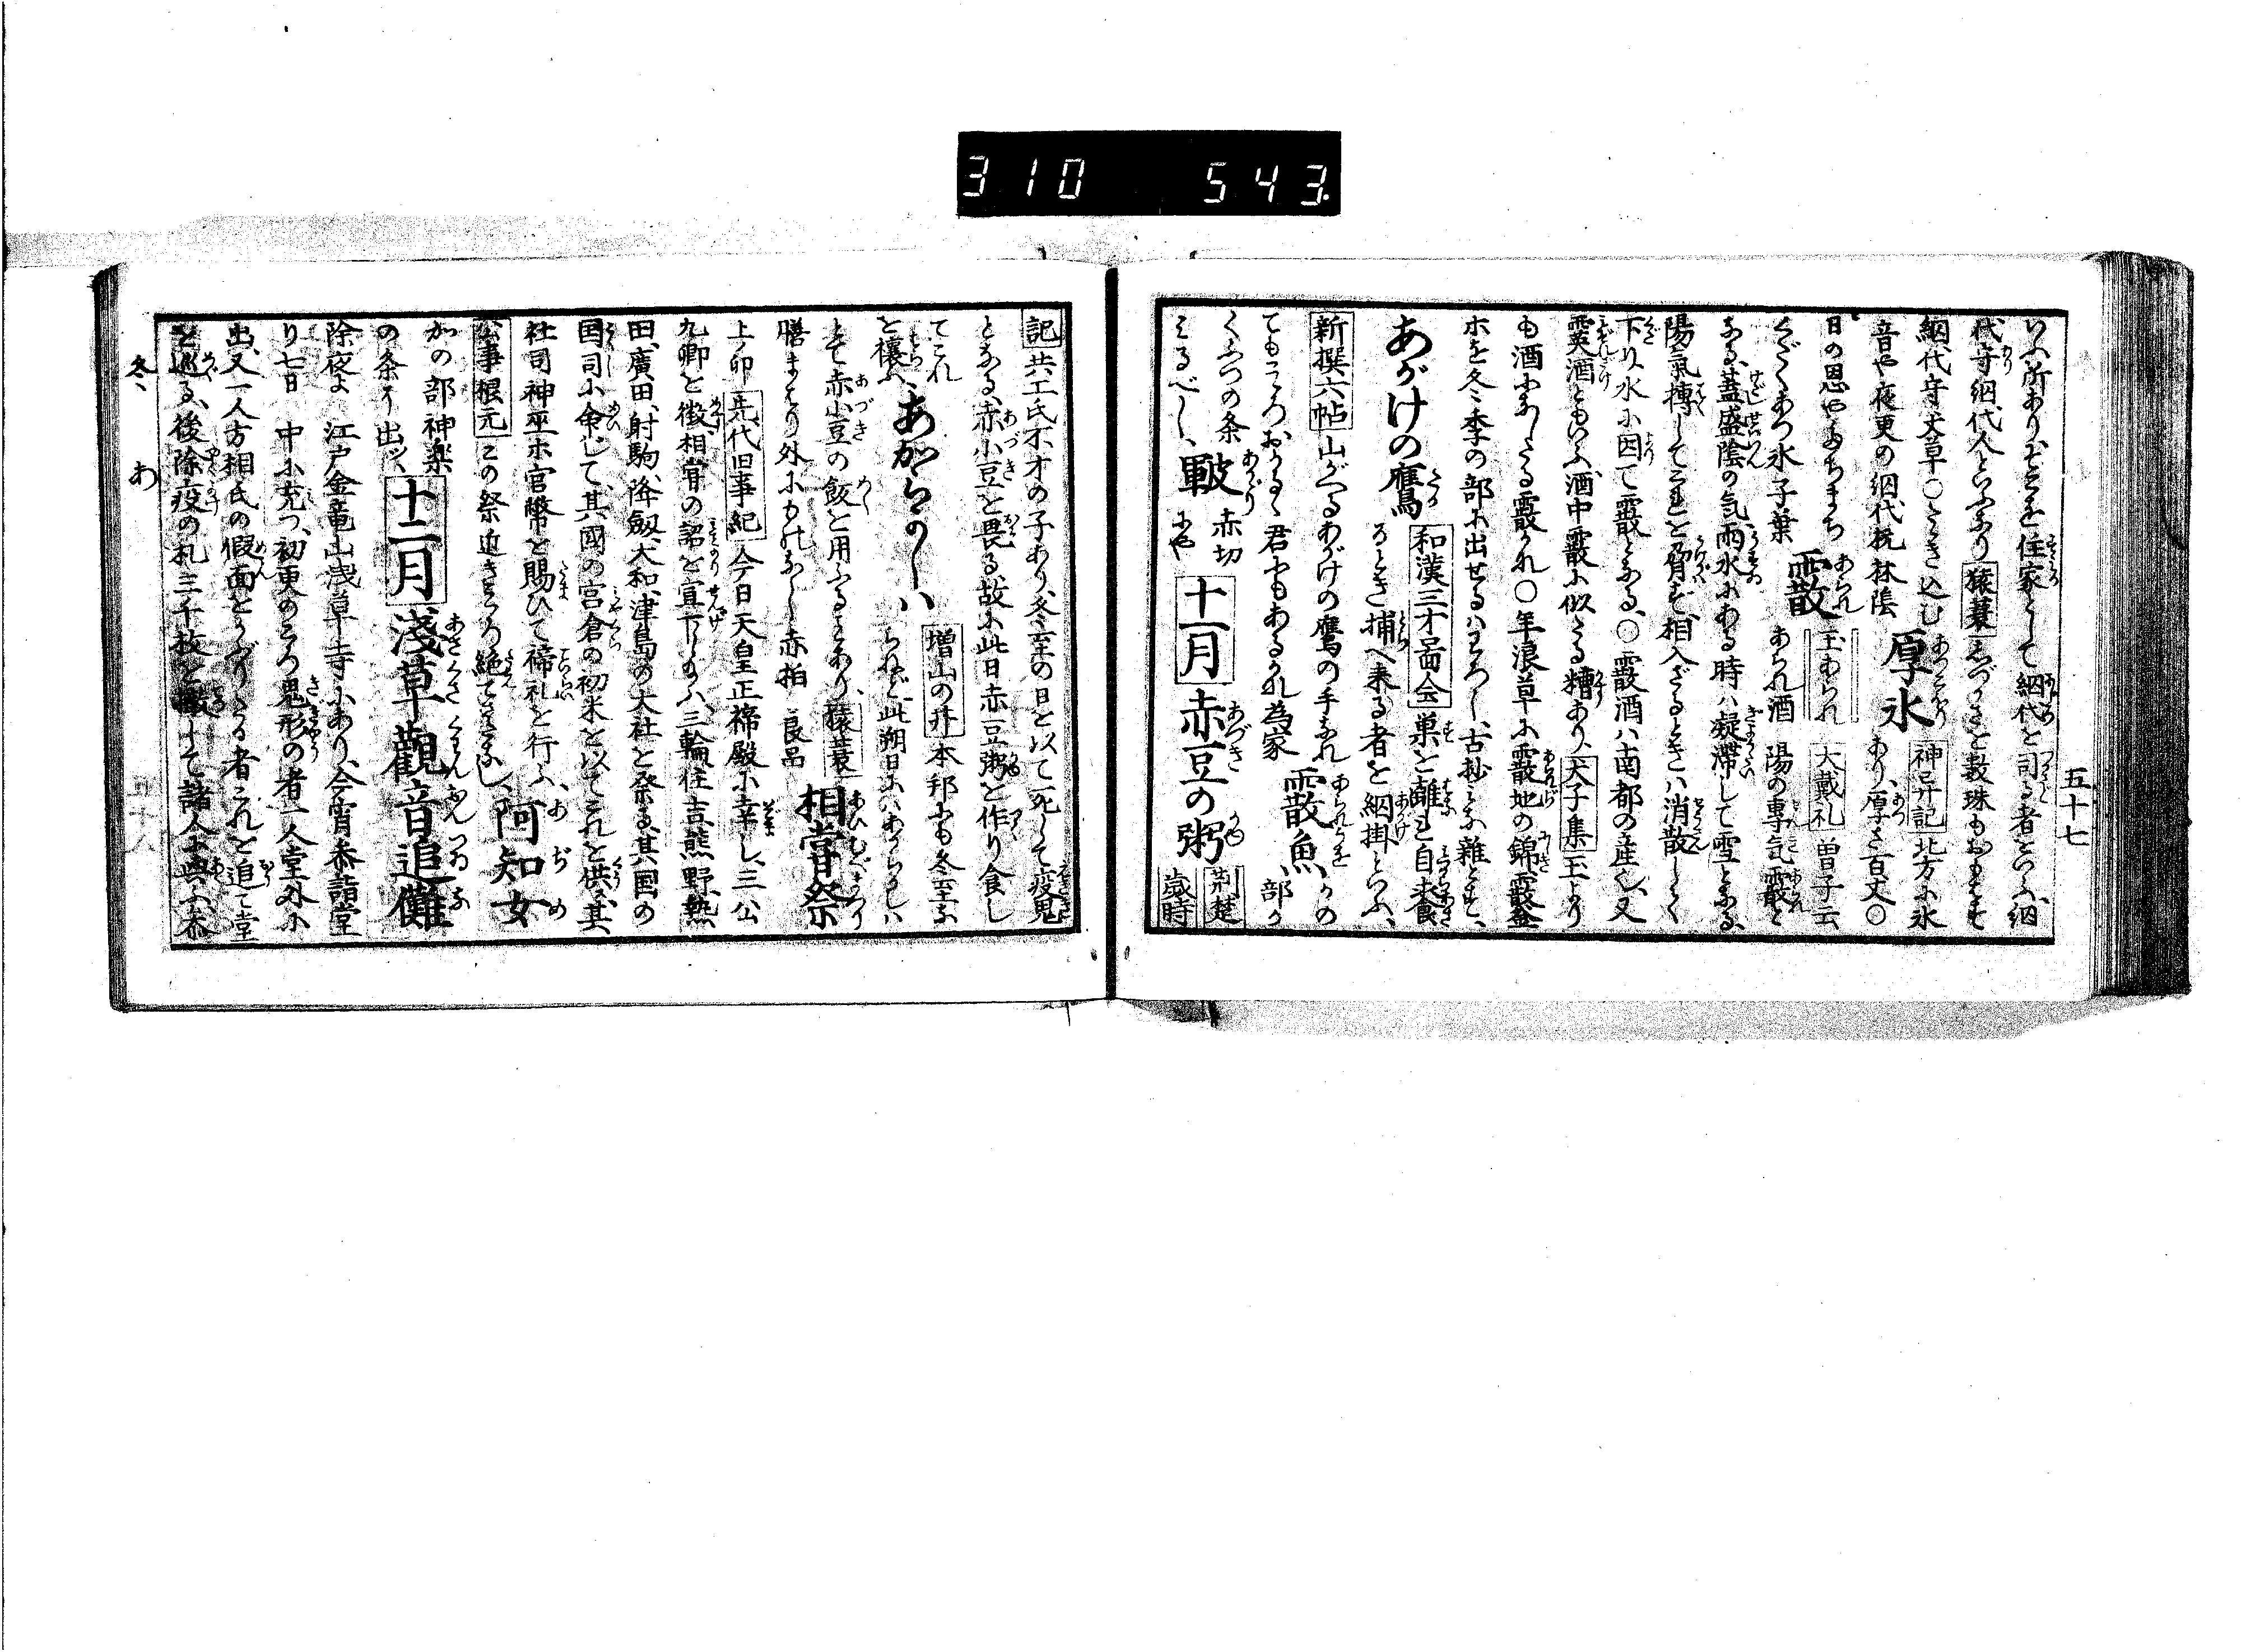 310 543
五十七
いふ所ありぞこを住家として網代を司る者をいふ網
代守網代人といふなり猿蓑しづかさを数珠もおもはず
網代守丈草〇とき込む厚氷神異記北方に氷
音や夜更の網代杭林陰あり厚さ百丈〇
日の恩やたちまち霰玉あられ大戴礼曽子云
くだくあつ氷子葉あられ酒陽の専気霰と
なる蓋盛陰の気雨水にある時ハ凝滞して雪となる
陽氣摶してこれを脅ず相入ざるときハ消散して
下り水に因て霰となる〇霰酒ハ南都の産也又
霙酒ともいふ酒中霰に似たる糟あり犬子集玉より
も酒になしたる霰かれ〇年浪草に霰地の錦霰釜
ホを冬季の部に出せるハわろし古抄に雑とす
あがけの鷹和漢三才啚会巣を離れ自食
るとき捕へ来る者を網掛といふ
新撰六帖山がへるあがけの鷹の手なれ
てもこころおかるゝ君にもあるかれ為家霰魚かの部か
くふつの条
皸赤切
みるべしにや十一月赤豆の粥荊楚歳時
記共工氏不才の子あり冬至の日を以て死して疫鬼
となる赤小豆を畏る故に此日赤豆粥を作り食し
てこれ増山の井本邦にも冬至に
を穰ふあからのかしハちねど此朔日にハあからかしハ
とて赤小豆の飯を用ふることあり猿蓑
膳まはり外にも此なし赤柏良品相嘗祭
上卯先代旧事紀今日天皇正禘殿に幸し三公
九卿を徴相嘗の詔を宣下し玉ハ三輪住吉熊野熱
田廣田射駒降劔大和津島の大社を祭る其国の
国司に命じて其國の宮倉の初米を以てこれを供其
社司神巫ホ官幣を賜ひて禘礼を行ふ
公事根元この祭近きころ絶てさたなし阿知女
かの部神楽
の条に出づ十二月淺草觀音追儺
除夜よ江戸金竜山浅草寺にあり今宵参詣堂
り七日中に充つ初更のころ鬼形の者一人堂外に
出又一人方相氏の假面をかぶりたる者これを追て堂
を巡る後除疫の札三千枚を散して諸人に與ふ参
冬あ